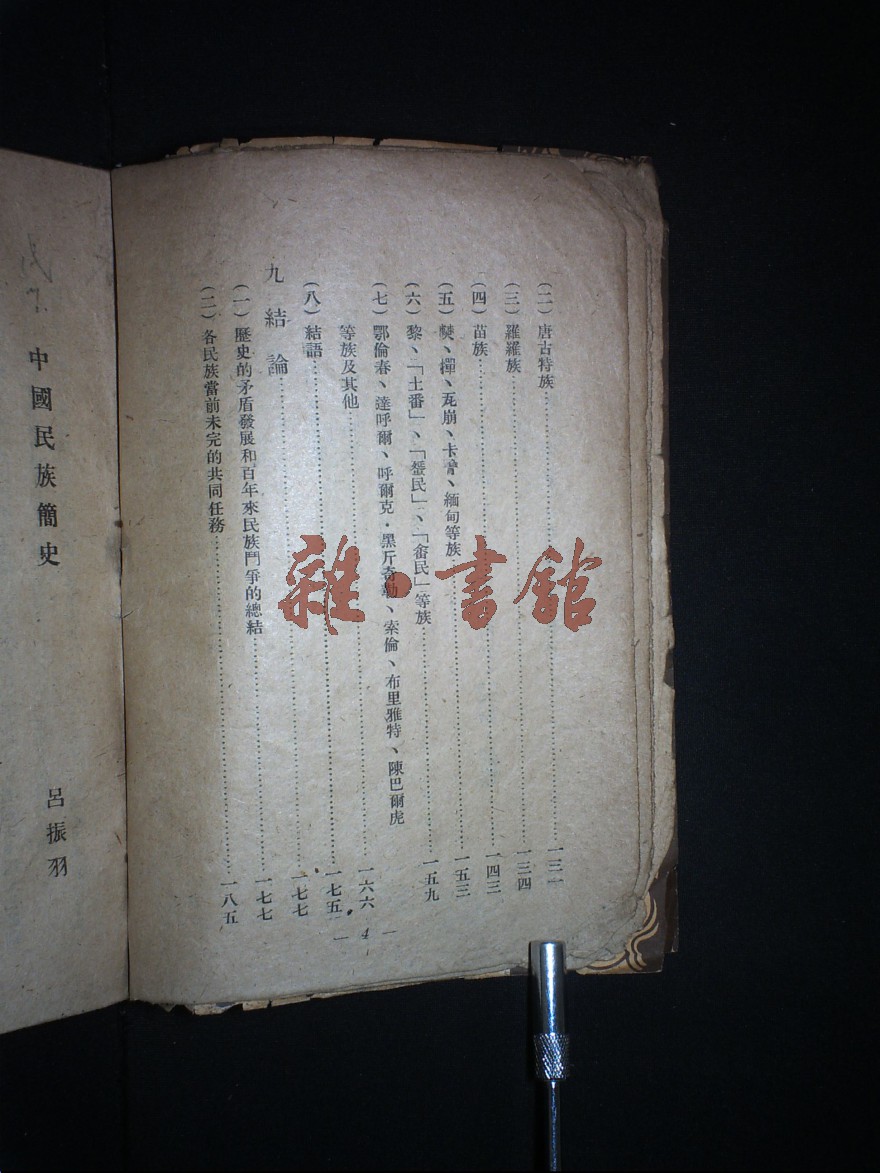 (二) 唐古特族……一二一
(三) 羅羅族……一三四
(四) 苗族……一四三
(五) 僰、撣、瓦崩、卡 、緬甸等族……一五三
(六) 黎、「土番」、「蜑民」、「畲民」等族……一五九
(七) 鄂倫春、達呼爾、呼爾克・黑斤奇勒、索倫、布里雅特、陳巴爾虎
等族及其他……一六六
(八) 結語……一七五
九 結論……一七七
(一) 歷史的矛盾發展和百年來民族鬥爭的總結……一七七
(二) 各民族當前未完的共同任務……一八五
中國民族簡史
呂振羽
雜・書館